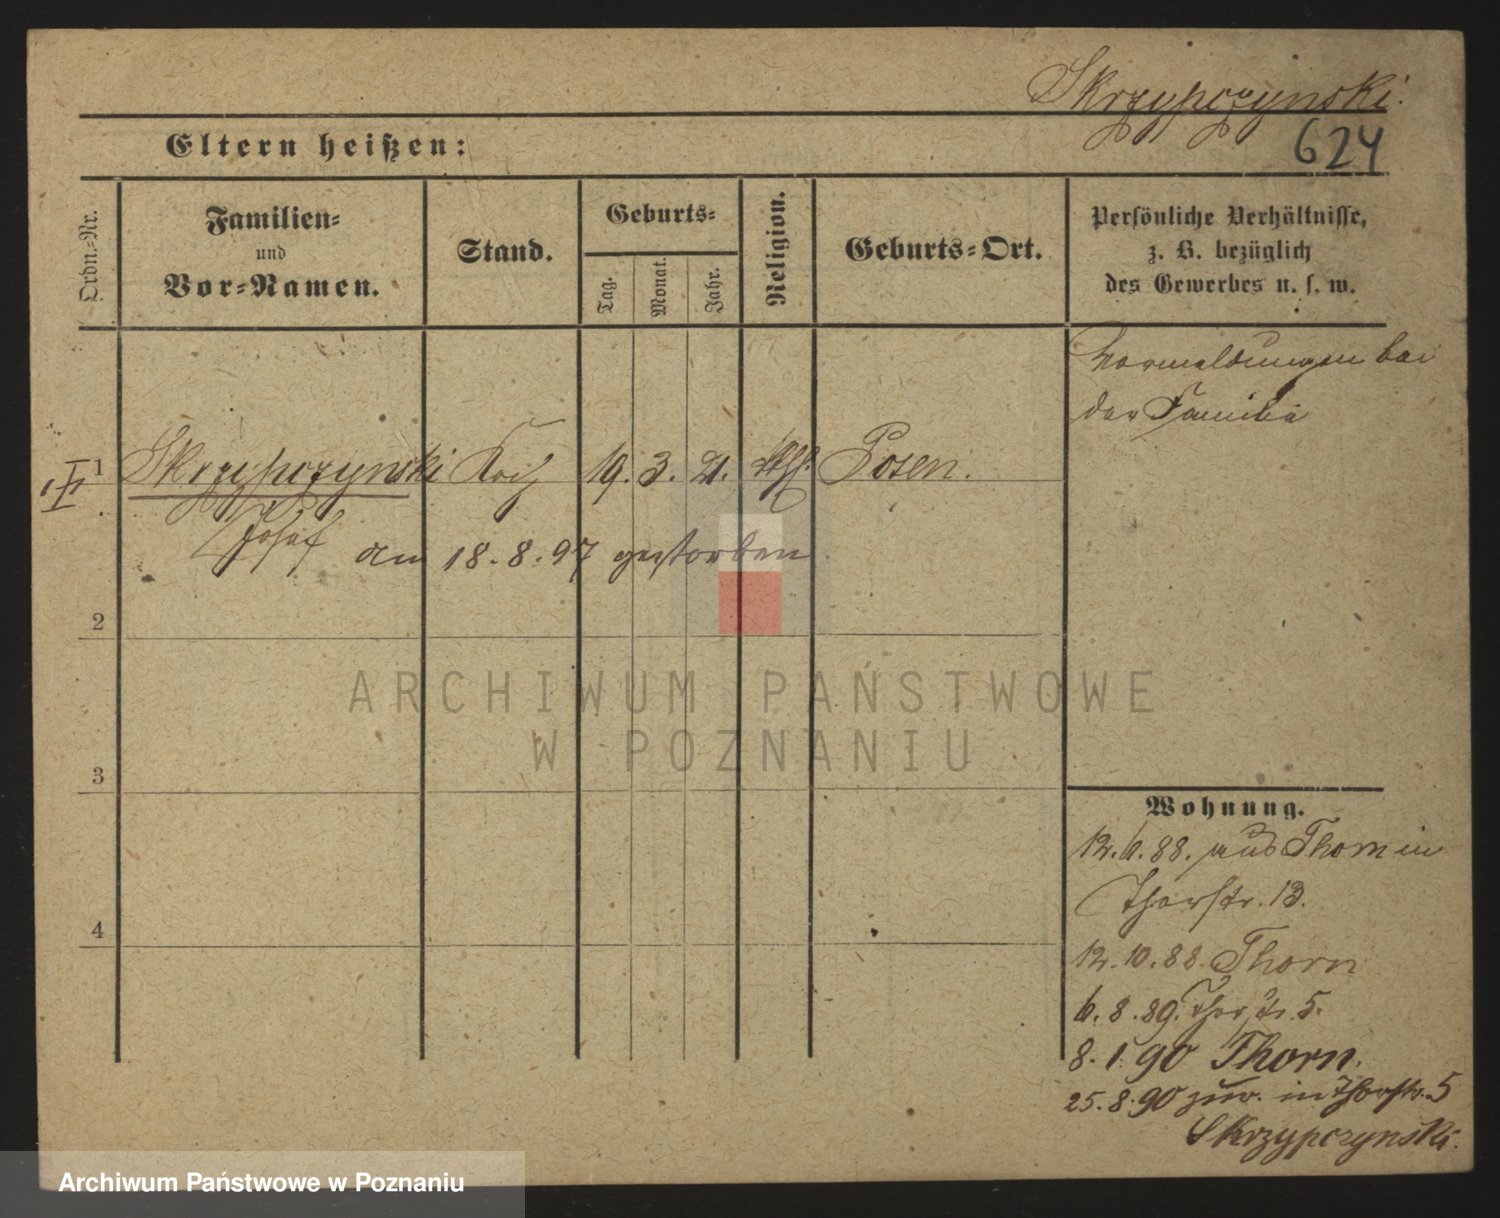 Skrzypczynski.
Eltern heißen:
624
Ordn.-Nr.
Familien-
und
Vor-Namen.
Stand.
Geburts-
Tag.
Monat.
Jahr.
Religion.
Geburts-Ort.
Persönliche Verhältnisse,
z. B. bezüglich
des Gewerbes u. s. w.
Vormeldungen bei
der Familie
1 Skrzypczynski Koch 19. 3. 21. kath. Posen.
Josef am 18. 8. 97 gestorben
2
3
4
Wohnung.
12. 6. 88. aus Thorn in
Thorstr. 13.
12. 10. 88. Thorn
6. 8. 89. Thorstr. 5.
8. 1. 90 Thorn.
25. 8. 90 zur. in Thorstr. 5
Skrzypczynski.
ARCHIWUM PAŃSTWOWE
W POZNANIU
Archiwum Państwowe w Poznaniu